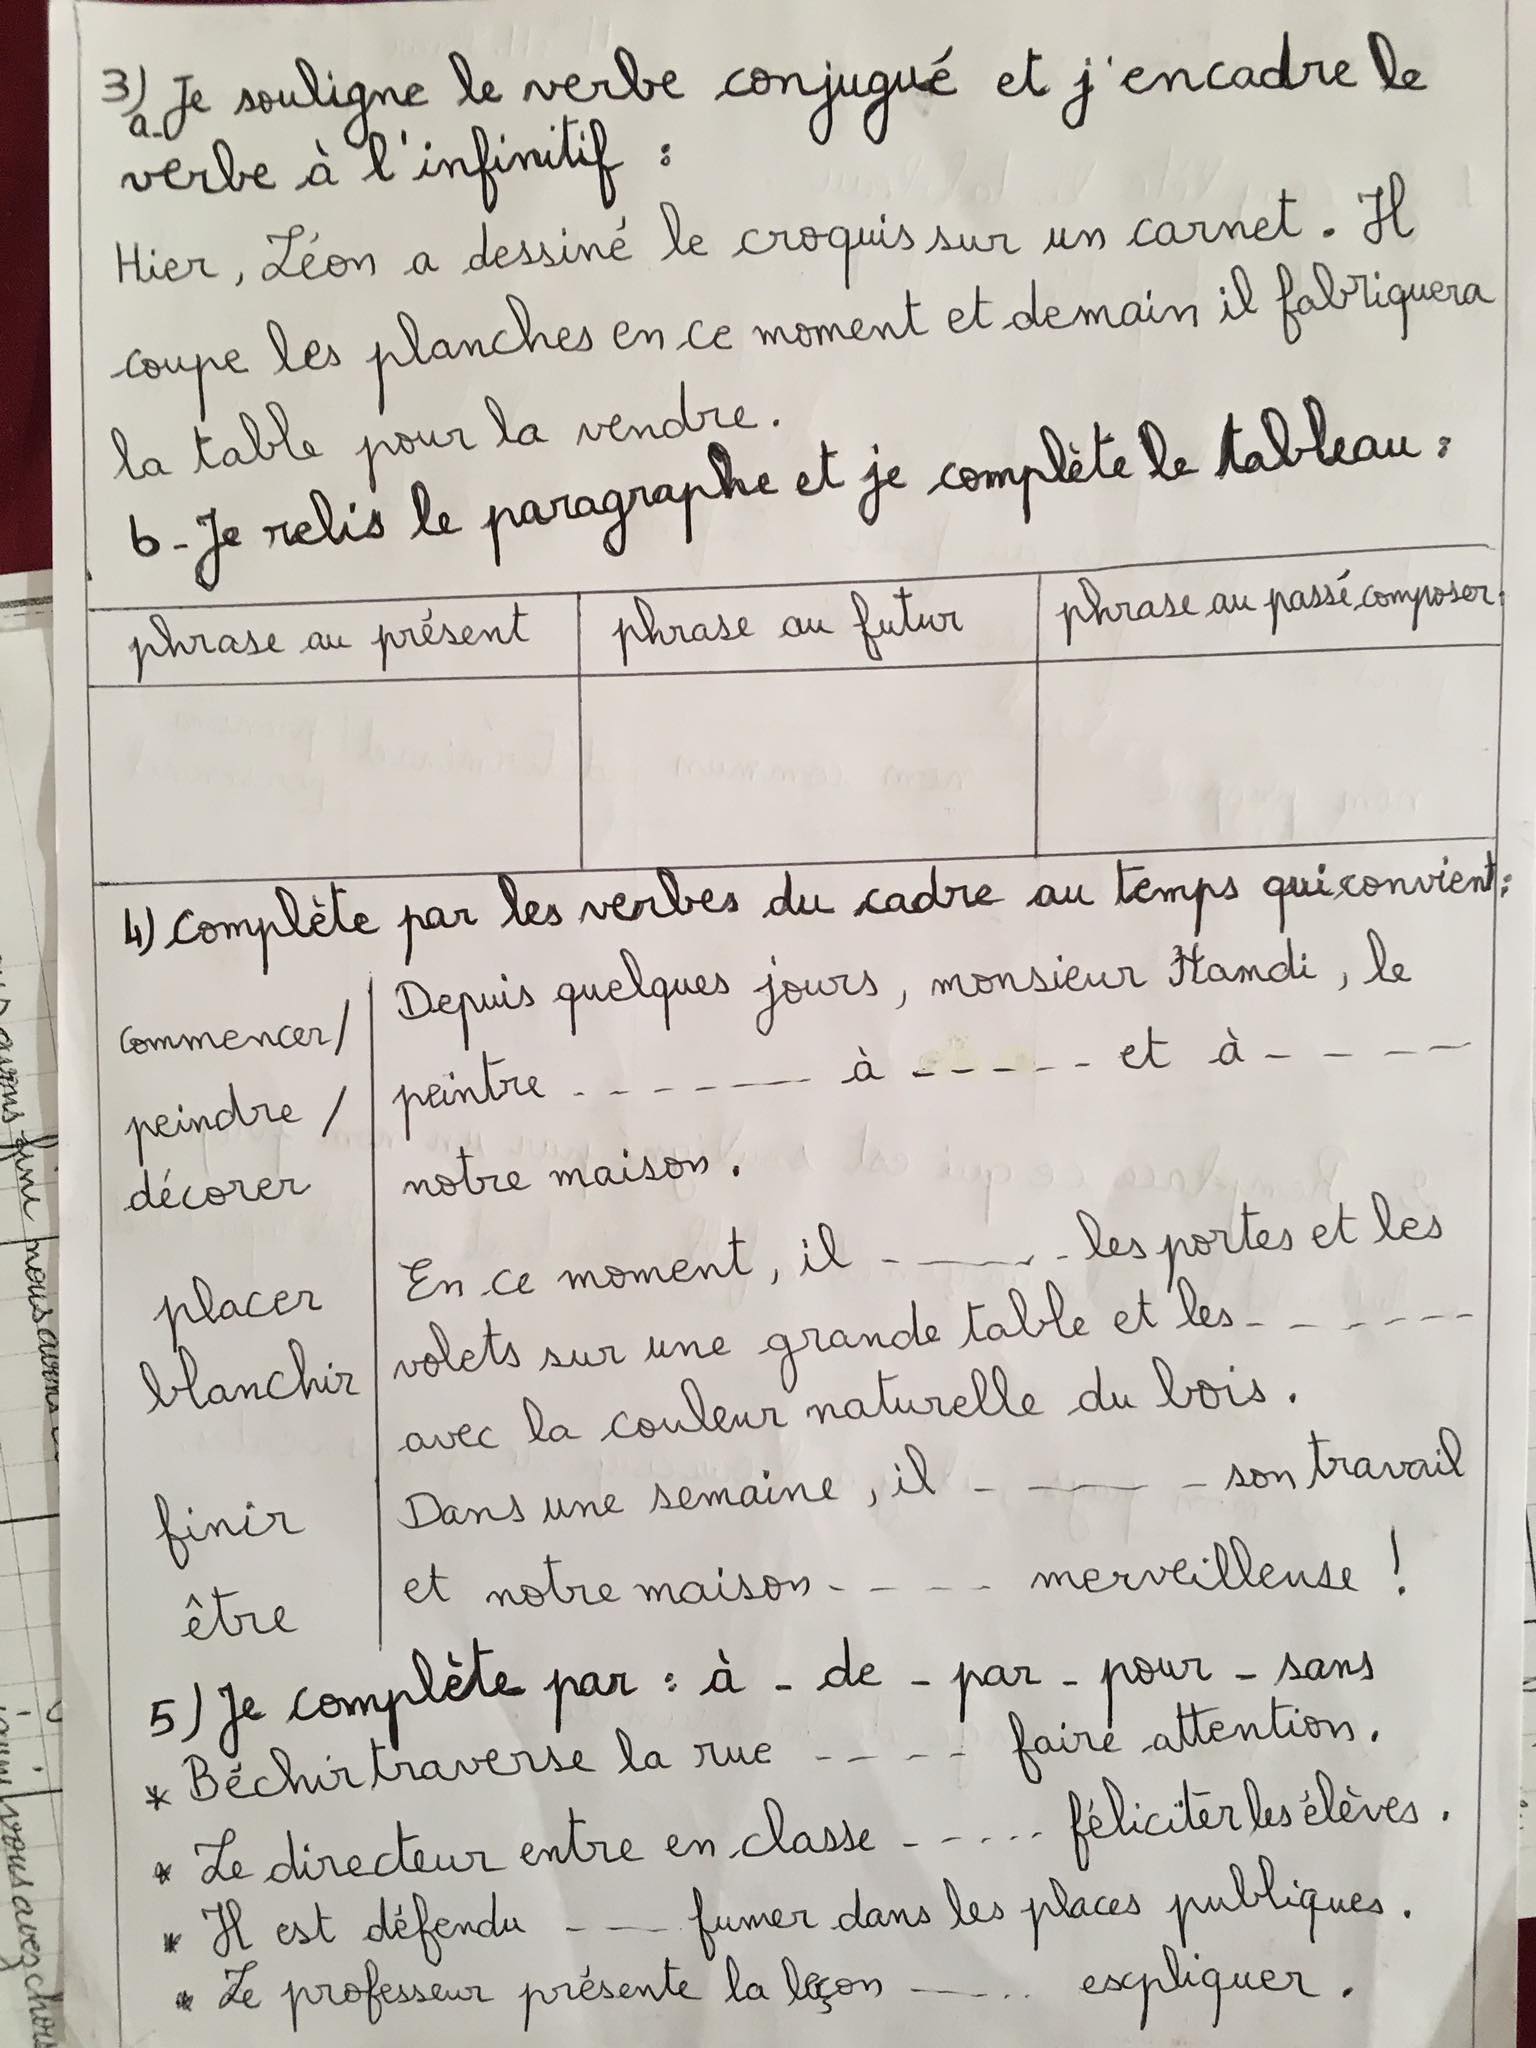 3) a- Je souligne le verbe conjugué et j'encadre le
verbe à l'infinitif :
Hier, Léon a dessiné le croquis sur un carnet. Il
coupe les planches en ce moment et demain il fabriquera
la table pour la vendre.
b- Je relis le paragraphe et je complète le tableau :
phrase au présent phrase au futur phrase au passé composer.
4) Complète par les verbes du cadre au temps qui convient :
commencer /
peindre /
décorer
placer
blanchir
finir
être
Depuis quelques jours, monsieur Hamdi, le
peintre ------- à ----- et à ----
notre maison.
En ce moment, il ----- les portes et les
volets sur une grande table et les -------
avec la couleur naturelle du bois.
Dans une semaine, il ----- son travail
et notre maison ---- merveilleuse !
5) Je complète par : à - de - par - pour - sans
* Béchir traverse la rue ---- faire attention.
* Le directeur entre en classe ----- féliciter les élèves.
* Il est défendu --- fumer dans les places publiques.
* Le professeur présente la leçon ----- expliquer.